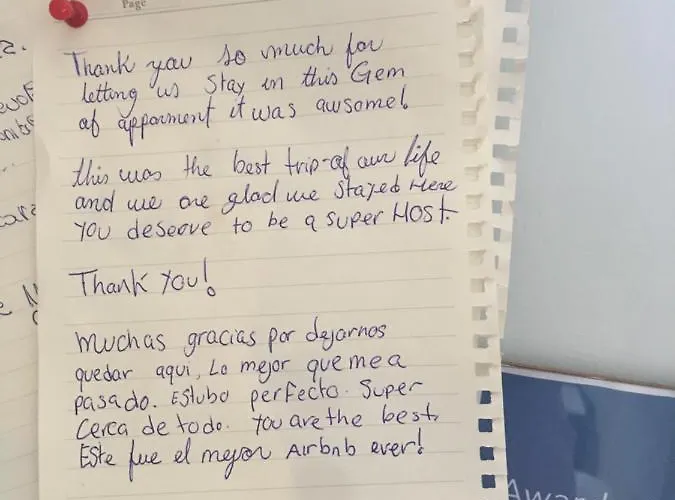 Page
Thank you so much for
letting us stay in this Gem
of apparment it was awsome!
this was the best trip of our life
and we are glad we stayed Here
you deserve to be a super HOST.
Thank you!
Muchas gracias por dejarnos
quedar aqui, Lo mejor que me a
pasado. Estubo perfecto. Super
Cerca de todo. You are the best.
Este fue el mejor Airbnb ever!